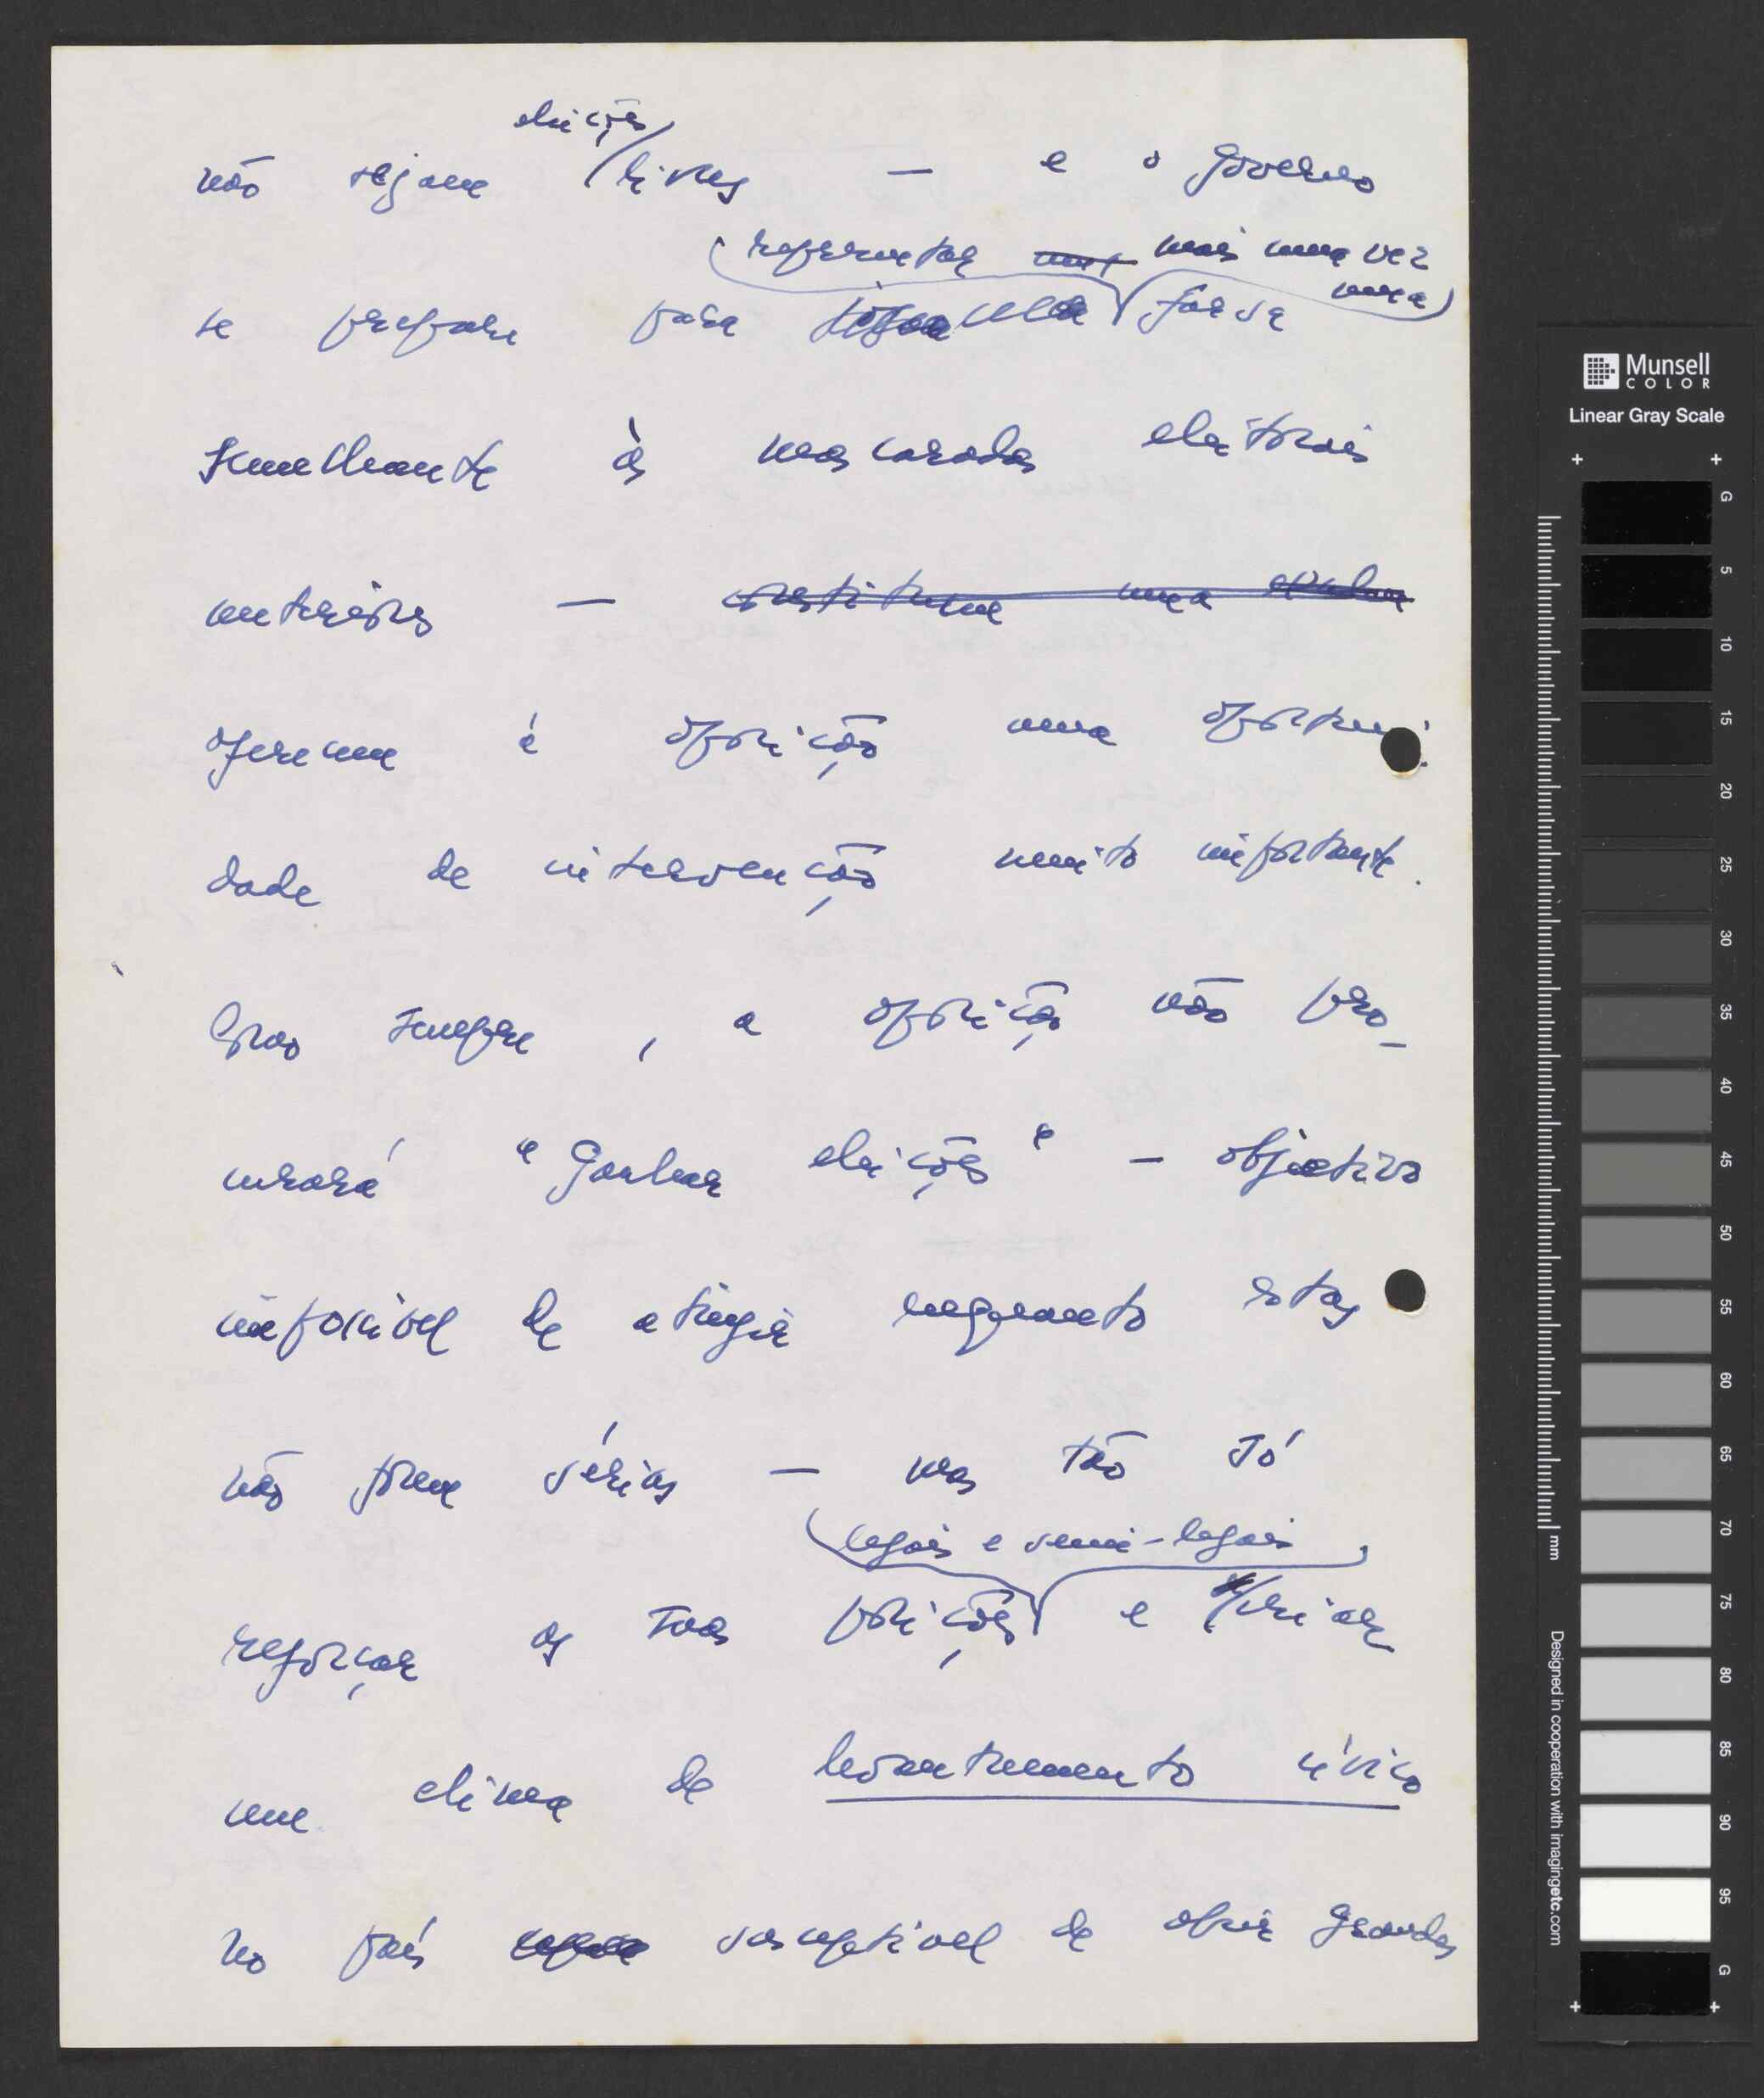 eleições
não sejam livres — e o governo
representar mais uma vez
uma
se prepare para farsa
semelhante às mascaradas eleitorais
anteriores — constituem uma
oferecem à oposição uma oportuni-
dade de intervenção muito importante.
Como sempre, a oposição não pro-
curará "ganhar eleições" — objectivo
impossível de atingir enquanto estas
não forem sérias — mas tão só
legais e semi-legais,
reforçar as suas posições e criar
um clima de levantamento cívico
no país susceptível de abrir grandes
Munsell
COLOR
Linear Gray Scale
G
5
10
15
20
25
30
35
40
45
50
55
60
65
70
75
80
85
90
95
G
mm
Designed in cooperation with imagingetc.com